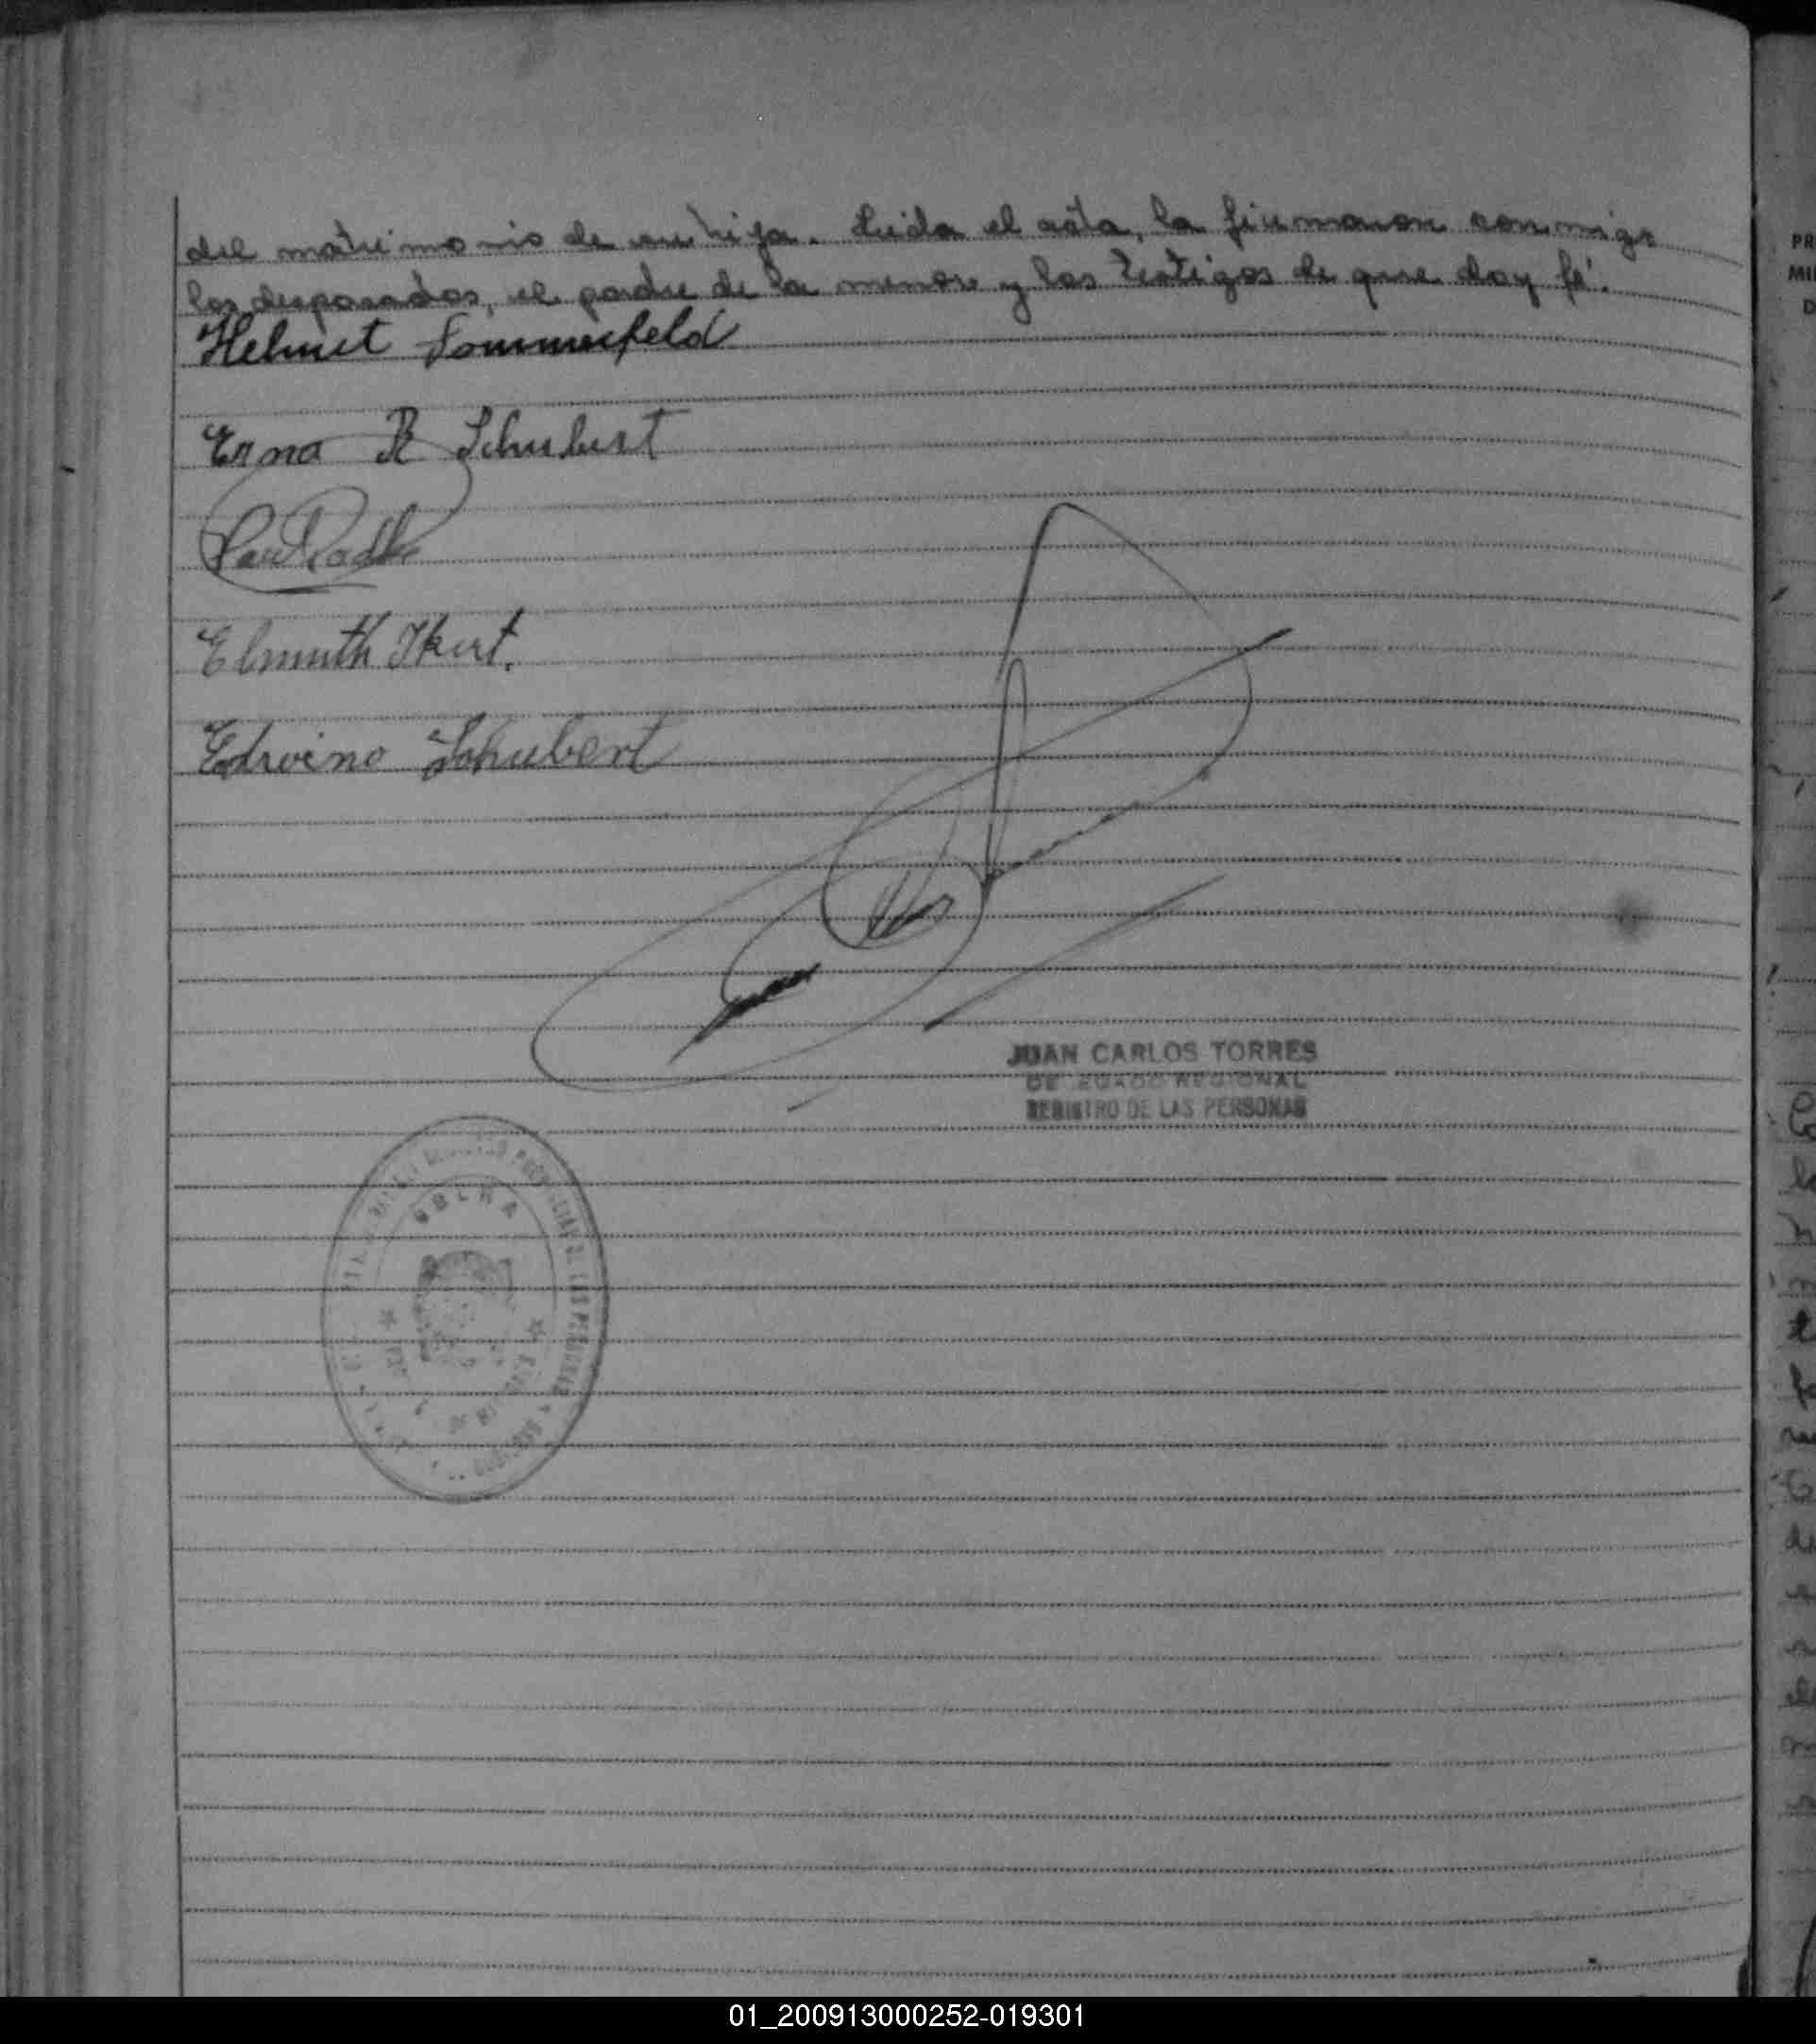 del matrimonio de su hija. Leida el acta, la firmaron conmigo
los desposados, el padre de la menor y los testigos de que doy fé.
Helmut Sommerfeld
Erna R Schubert
Elmuth Ikert.
Edwino Schubert
JUAN CARLOS TORRES
DELEGADO REGIONAL
REGISTRO DE LAS PERSONAS
PROVINCIAL DE LAS PERSONAS
OBERA
PR
MI
D
01_200913000252-019301